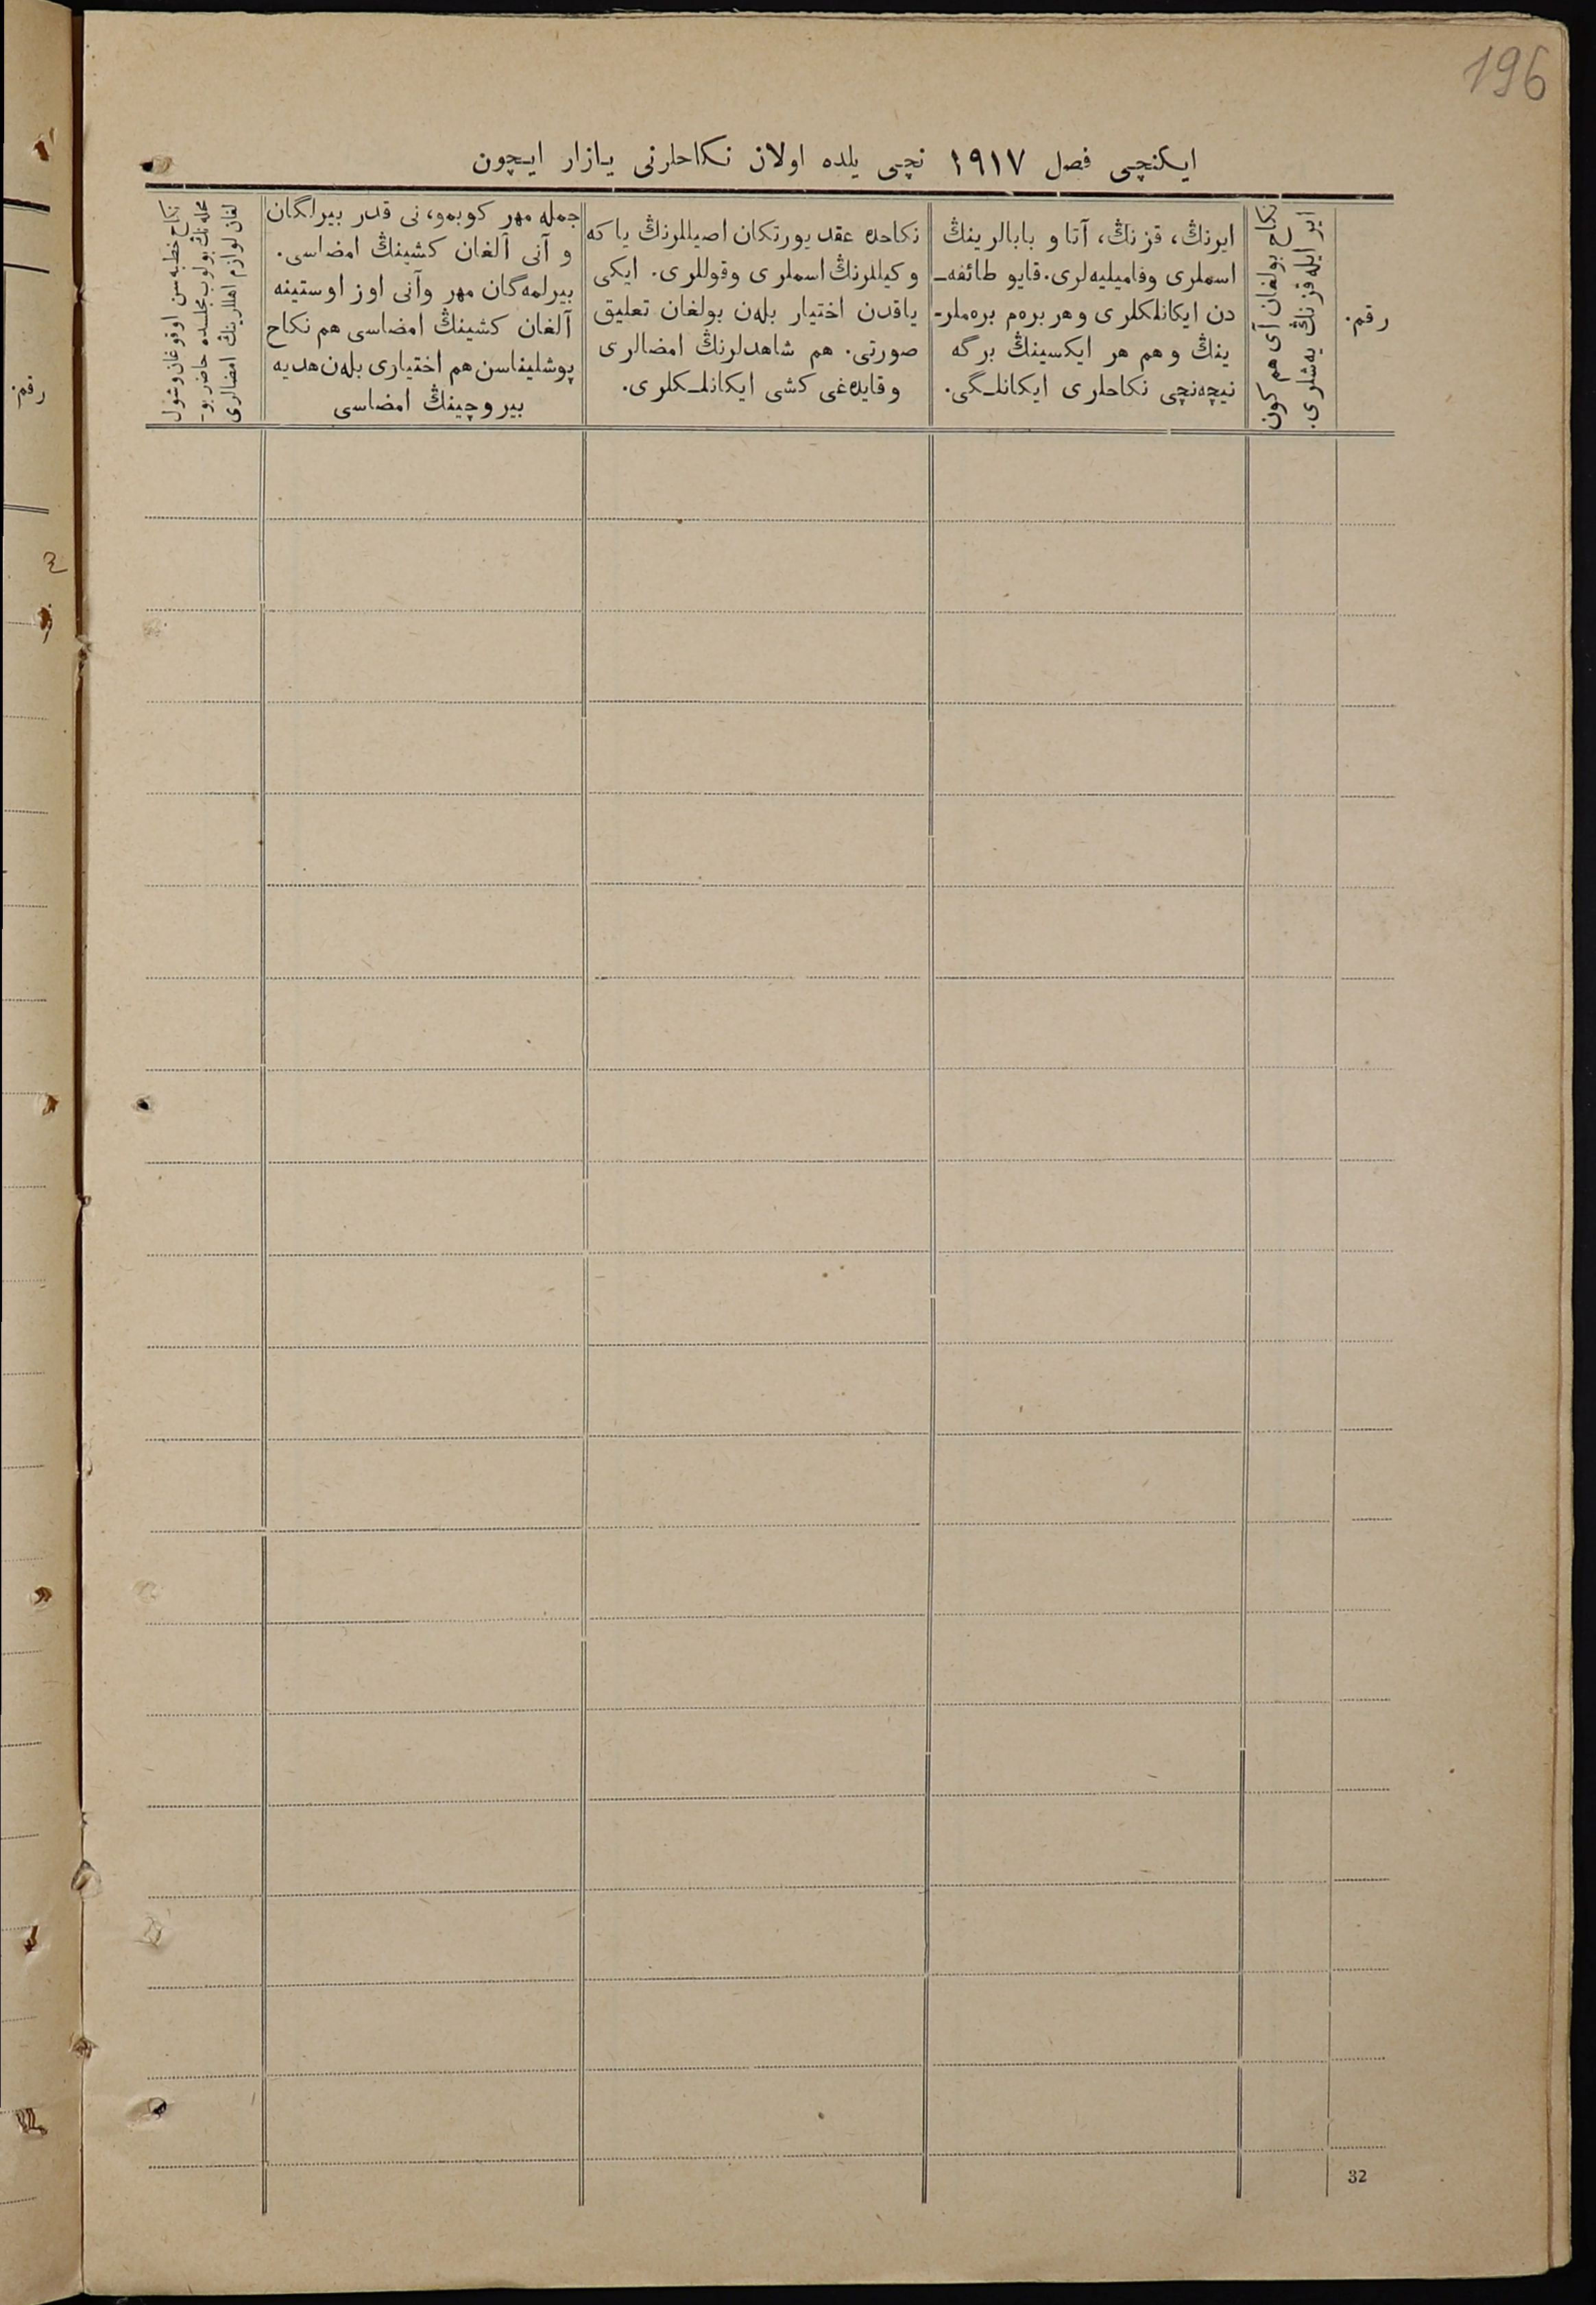 196
ایکنچی فصل ۱۹۱۷ نچی یلده اولان نکاحلرنی یازار ایچون
رقم.
ایر ایله قز نڭ یه‌شلری.
نکاح بولغان آی هم کون
ایرنڭ، قزنڭ، آتا و بابالرینڭ
اسملری وفامیلیه‌لری. قایو طائفه‌ـ
دن ایکانلکلری وهر بره‌م بره‌ملر-
ینڭ وهم هر ایکسینڭ برگه
نیچه‌نچی نکاحلری ایکانلـگی.
نکاحده عقد یورتکان اصیللرنڭ یا که
وکیللرنڭ اسملری وقوللری. ایکی
یاقدن اختیار بله‌ن بولغان تعلیق
صورتی. هم شاهدلرنڭ امضالری
وقایده‌غی کشی ایکانلـکلری.
جمله مهر کوبمو، نی قدر بیرلگان
و آنی آلغان کشینڭ امضاسی.
بیرلمه‌گان مهر وآنی اوز اوستینه
آلغان کشینڭ امضاسی هم نکاح
پوشلیناسن هم اختیاری بله‌ن هدیه
بیروچینڭ امضاسی
نکاح خطبه‌سن اوقوغان وشول
محله‌نڭ بولوب مجلسده حاضر بو-
لغان لوازم اهللرینڭ امضالری
رقم.
32